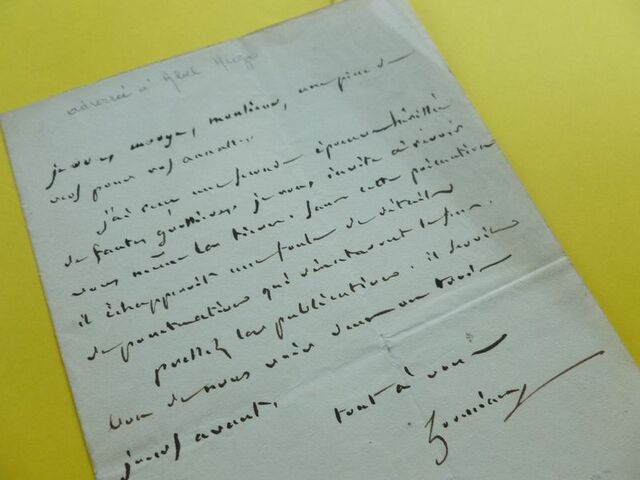 adressé à Abel Hugo
je vous envoye, monsieur, une pièce de
vers pour vos annales.
j'ai reçu une seconde épreuve hérissée
de fautes grossières je vous invite à revoir
vous même la tierce. sans cette précaution
il échapperoit une foule de détails
de ponctuations qui dénaturent le sens.
pressez les publications. il seroit
bon de nous voir deux ou trois
jours avant.
tout à vous